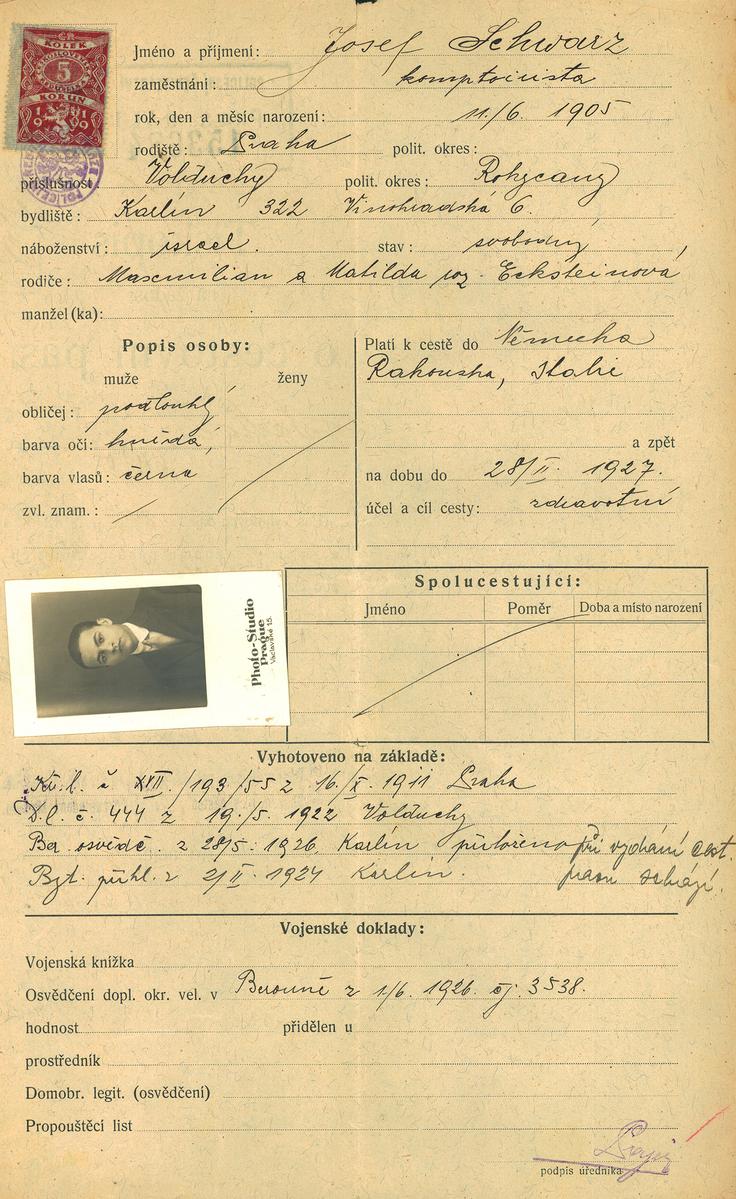 KOLEK
5
KORUN
Jméno a příjmení: Josef Schwarz
zaměstnání: komptoirista
rok, den a měsíc narození: 11./6. 1905
rodiště: Praha polit. okres:
příslušnost: Volduchy polit. okres: Rokycany
bydliště: Karlín 322 Vinohradská 6.
náboženství: israel. stav: svobodný,
rodiče: Maxmilian a Matilda roz. Ecksteinová
manžel(ka):
Popis osoby:
muže ženy
obličej: podlouhlý
barva očí: hnědá,
barva vlasů: černa
zvl. znam.: /
Platí k cestě do Německa
Rakouska, Italie
a zpět
na dobu do 28/II. 1927.
účel a cíl cesty: zdravotní
Photo-Studio
Prague
Václavské 15.
Spolucestující:
Jméno Poměr Doba a místo narození
Vyhotoveno na základě:
Kř. l. č XVII./193/55 z 16/X. 1911 Praha
D.l. č. 444 z 19./5. 1922 Volduchy
Ber. osvědč. z 28/5. 1926. Karlín přiloženo při vydání cest.
Byt. přihl. z 2/II. 1924 Karlín. pasu schází.
Vojenské doklady:
Vojenská knížka
Osvědčení dopl. okr. vel. v Berouně z 1/6. 1926. čj. 3538.
hodnost přidělen u
prostředník
Domobr. legit. (osvědčení)
Propouštěcí list
podpis úředníka